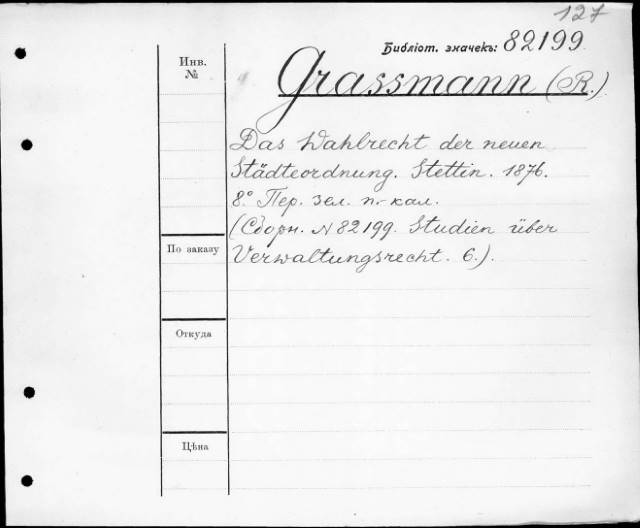 127
Библіот. значекъ: 82199
Инв.
№
Grassmann (R.)
Das Wahlrecht der neuen
Städteordnung. Stettin. 1876.
8.° Пер. зел. п.-кал.
(Сборн. N 82199. Studien über
Verwaltungsrecht. 6.).
По заказу
Откуда
Цѣна